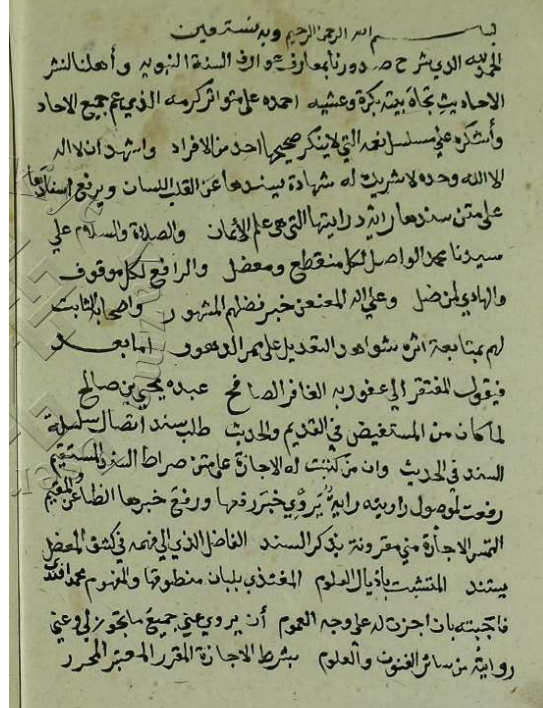 بسم الله الرحمن الرحيم وبه نستعين
الحمد لله الذي شرح صدورنا بمعارف عوارف السنة النبوية وأهلنا لنشر
الاحاديث تجاه بيته بكرة وعشيه احمده على متواتر كرمه الذي عم جميع الاحاد
وأشكره على مسلسل نعمه التي لا ينكر صحيحها احد من الافراد واشهد ان لا اله
الا الله وحده لا شريك له شهادة يسندها عن القلب اللسان ويرفع اسنادها
على متن سندها راية درايتها التي هي علم الأيمان والصلاة والسلام علي
سيدنا محمد الواصل لكل منقطع ومعضل والرافع لكل موقوف
والهادي لمن ضل وعلي اله المعنعن خبر فضلهم المشهور واصحابه الثابت
لهم بمتابعة اثره شواهد التعديل على ممر الدهور اما بعد
فيقول المفتقر الي عفو ربه الغافر الصافح عبده يحيي بن صالح
لما كان من المستفيض في القديم والحديث طلب سند اتصال سلسلة
السند في الحديث وان من كتبت له الاجازة على متن صراط السند المستقيم
رفعت لموصول راويته راية يروي خبر رفعها ورفع خبرها الظاعن والمقيم
التمس الاجازة مني مقرونة بذكر السند الفاضل الذي الي فهمه في كشف المعضل
يستند المتشبت باذيال العلوم المغتذي بلبان منطوقها والمفهوم محمد افندي
فاجبته بان اجزت له على وجه العموم أن يروي عني جميع ما تجوز لي وعني
روايته من سائر الفنون والعلوم بشرط الاجازة المقرر المعتبر المحرر